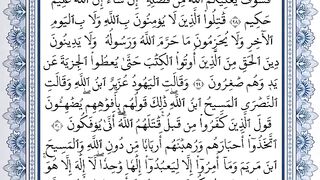 فَسَوْفَ يُغْنِيكُمُ اللَّهُ مِن فَضْلِهِ إِن شَاءَ إِنَّ اللَّهَ عَلِيمٌ
حَكِيمٌ ٢٨ قَٰتِلُوا الَّذِينَ لَا يُؤْمِنُونَ بِاللَّهِ وَلَا بِالْيَوْمِ
الْآخِرِ وَلَا يُحَرِّمُونَ مَا حَرَّمَ اللَّهُ وَرَسُولُهُ وَلَا يَدِينُونَ
دِينَ الْحَقِّ مِنَ الَّذِينَ أُوتُوا الْكِتَٰبَ حَتَّىٰ يُعْطُوا الْجِزْيَةَ عَن
يَدٍ وَهُمْ صَٰغِرُونَ ٢٩ وَقَالَتِ الْيَهُودُ عُزَيْرٌ ابْنُ اللَّهِ وَقَالَتِ
النَّصَٰرَى الْمَسِيحُ ابْنُ اللَّهِ ذَٰلِكَ قَوْلُهُم بِأَفْوَٰهِهِمْ يُضَٰهِـُٔونَ
قَوْلَ الَّذِينَ كَفَرُوا مِن قَبْلُ قَٰتَلَهُمُ اللَّهُ أَنَّىٰ يُؤْفَكُونَ ٣٠
اتَّخَذُوا أَحْبَارَهُمْ وَرُهْبَٰنَهُمْ أَرْبَابًا مِّن دُونِ اللَّهِ وَالْمَسِيحَ
ابْنَ مَرْيَمَ وَمَا أُمِرُوا إِلَّا لِيَعْبُدُوا إِلَٰهًا وَٰحِدًا لَّا إِلَٰهَ إِلَّا هُوَ